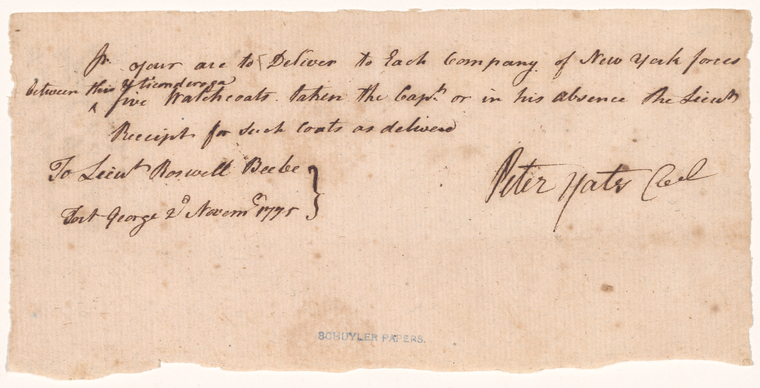 Sr. your are to Deliver to Each Company of New York forces
between this & Ticonderoga
^ five Watchcoats. taken the Capt. or in his absence the Lieuts
Receipt for such Coats as deliverd
To Lieut Roswell Beebe
Fort George 2d Novemr 1775
Peter Yates Coel
SCHUYLER PAPERS.